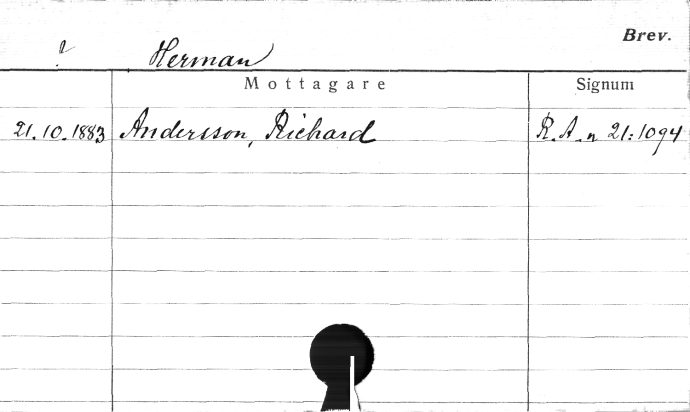 Brev.
? Herman
Mottagare Signum
21.10.1883 Andersson, Richard R.A. n 21:1094